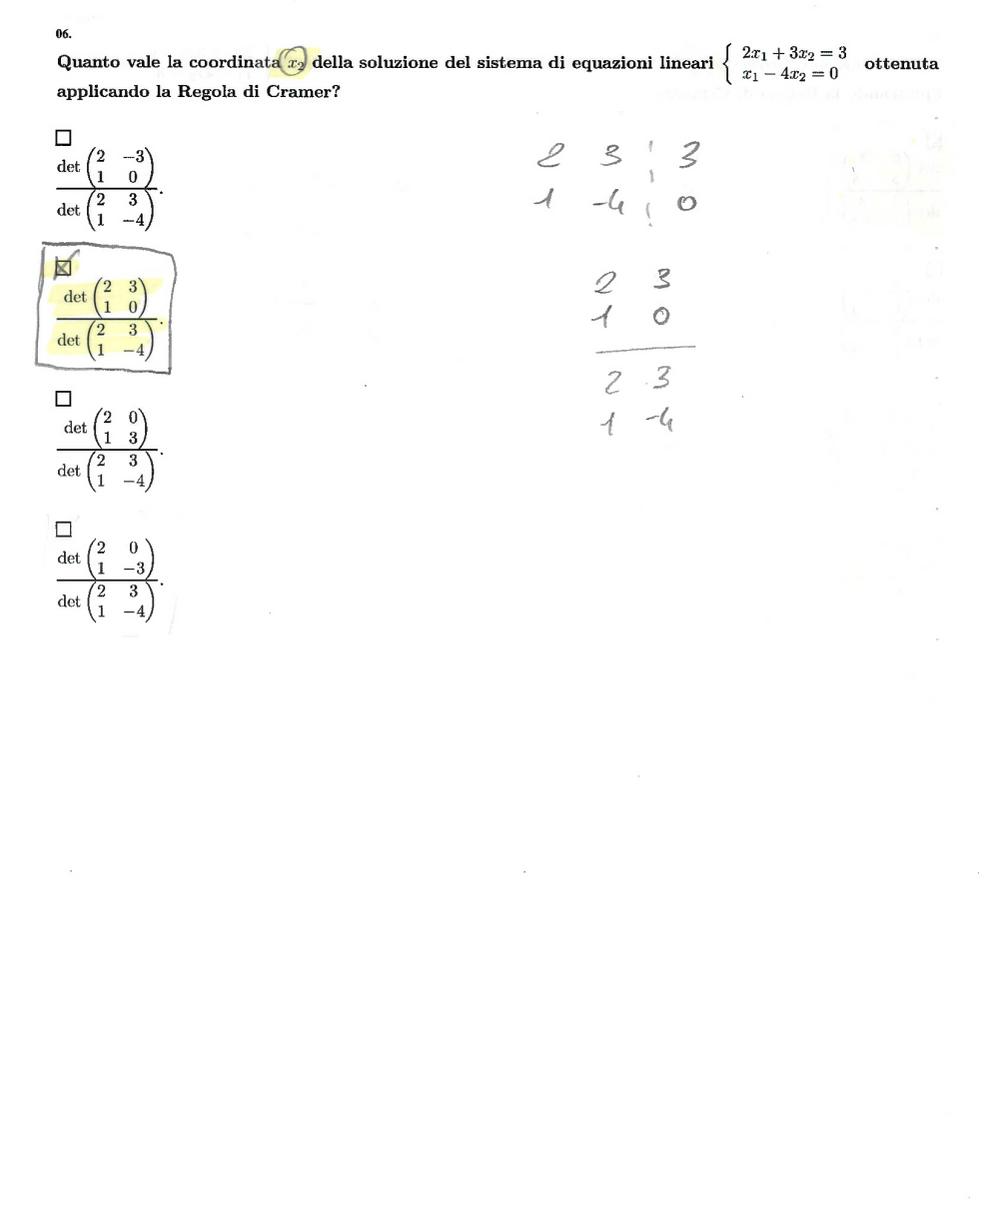 06.
Quanto vale la coordinata x₂ della soluzione del sistema di equazioni lineari { 2x₁ + 3x₂ = 3
x₁ − 4x₂ = 0 ottenuta
applicando la Regola di Cramer?
☐
det (2 −3
1 0)
det (2 3
1 −4).
☒
det (2 3
1 0)
det (2 3
1 −4).
☐
det (2 0
1 3)
det (2 3
1 −4).
☐
det (2 0
1 −3)
det (2 3
1 −4).
2 3 ¦ 3
1 -4 ¦ 0
2 3
1 0
2 3
1 -4